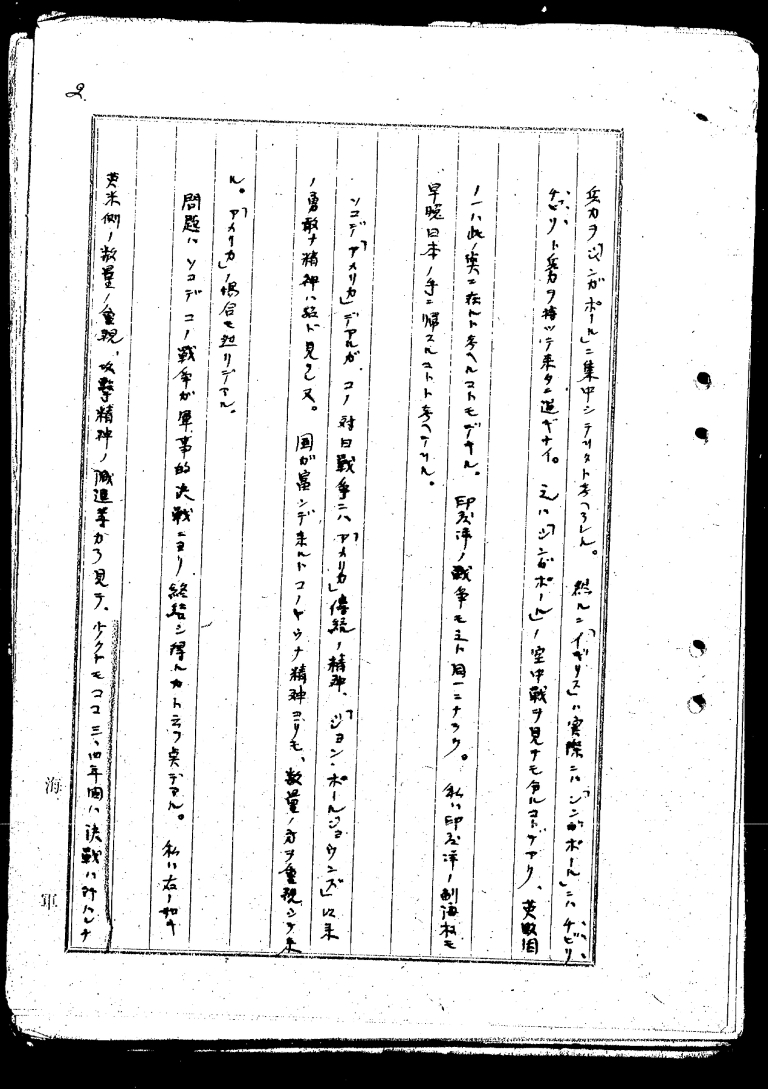 2.
兵力ヲ「シンガポール」ニ集中シテヰタト考ヘラレル。然ルニ「イギリス」ハ実際ニハ「シンガポール」ニハチビリ
チビリト兵力ヲ持ッテ来タニ過ギナイ。之ハ「シンガポール」ノ空中戦ヲ見テモ分ルコトデアリ、英敗因
ノ一ハ此ノ奌ニ在ルト考ヘルコトモデキル。印度洋ノ戦争モ之ト同一ニナラウ。私ハ印度洋ノ制海权モ
早晩日本ノ手ニ帰スルコトト考ヘテヰル。
ソコデ「アメリカ」デアルガ、コノ対日戦争ニハ「アメリカ」傳統ノ精神、「ジョン・ポールジョウンズ」以来
ノ勇敢ナ精神ハ殆ド見エヌ。国ガ富ンデ来ルトコノヤウナ精神ヨリモ、数量ノ方ヲ重視シテ来
ル。「アメリカ」ノ場合モ然リデアル。
問題ハソコデコノ戦争ガ軍事的決戦ニヨリ終結シ得ルカト云フ奌デアル。私ハ右ノ如キ
英米側ノ数量ノ重視、攻撃精神ノ減退等カラ見テ、少クトモココ三、四年間ハ決戦ハ行ハレナ
海軍